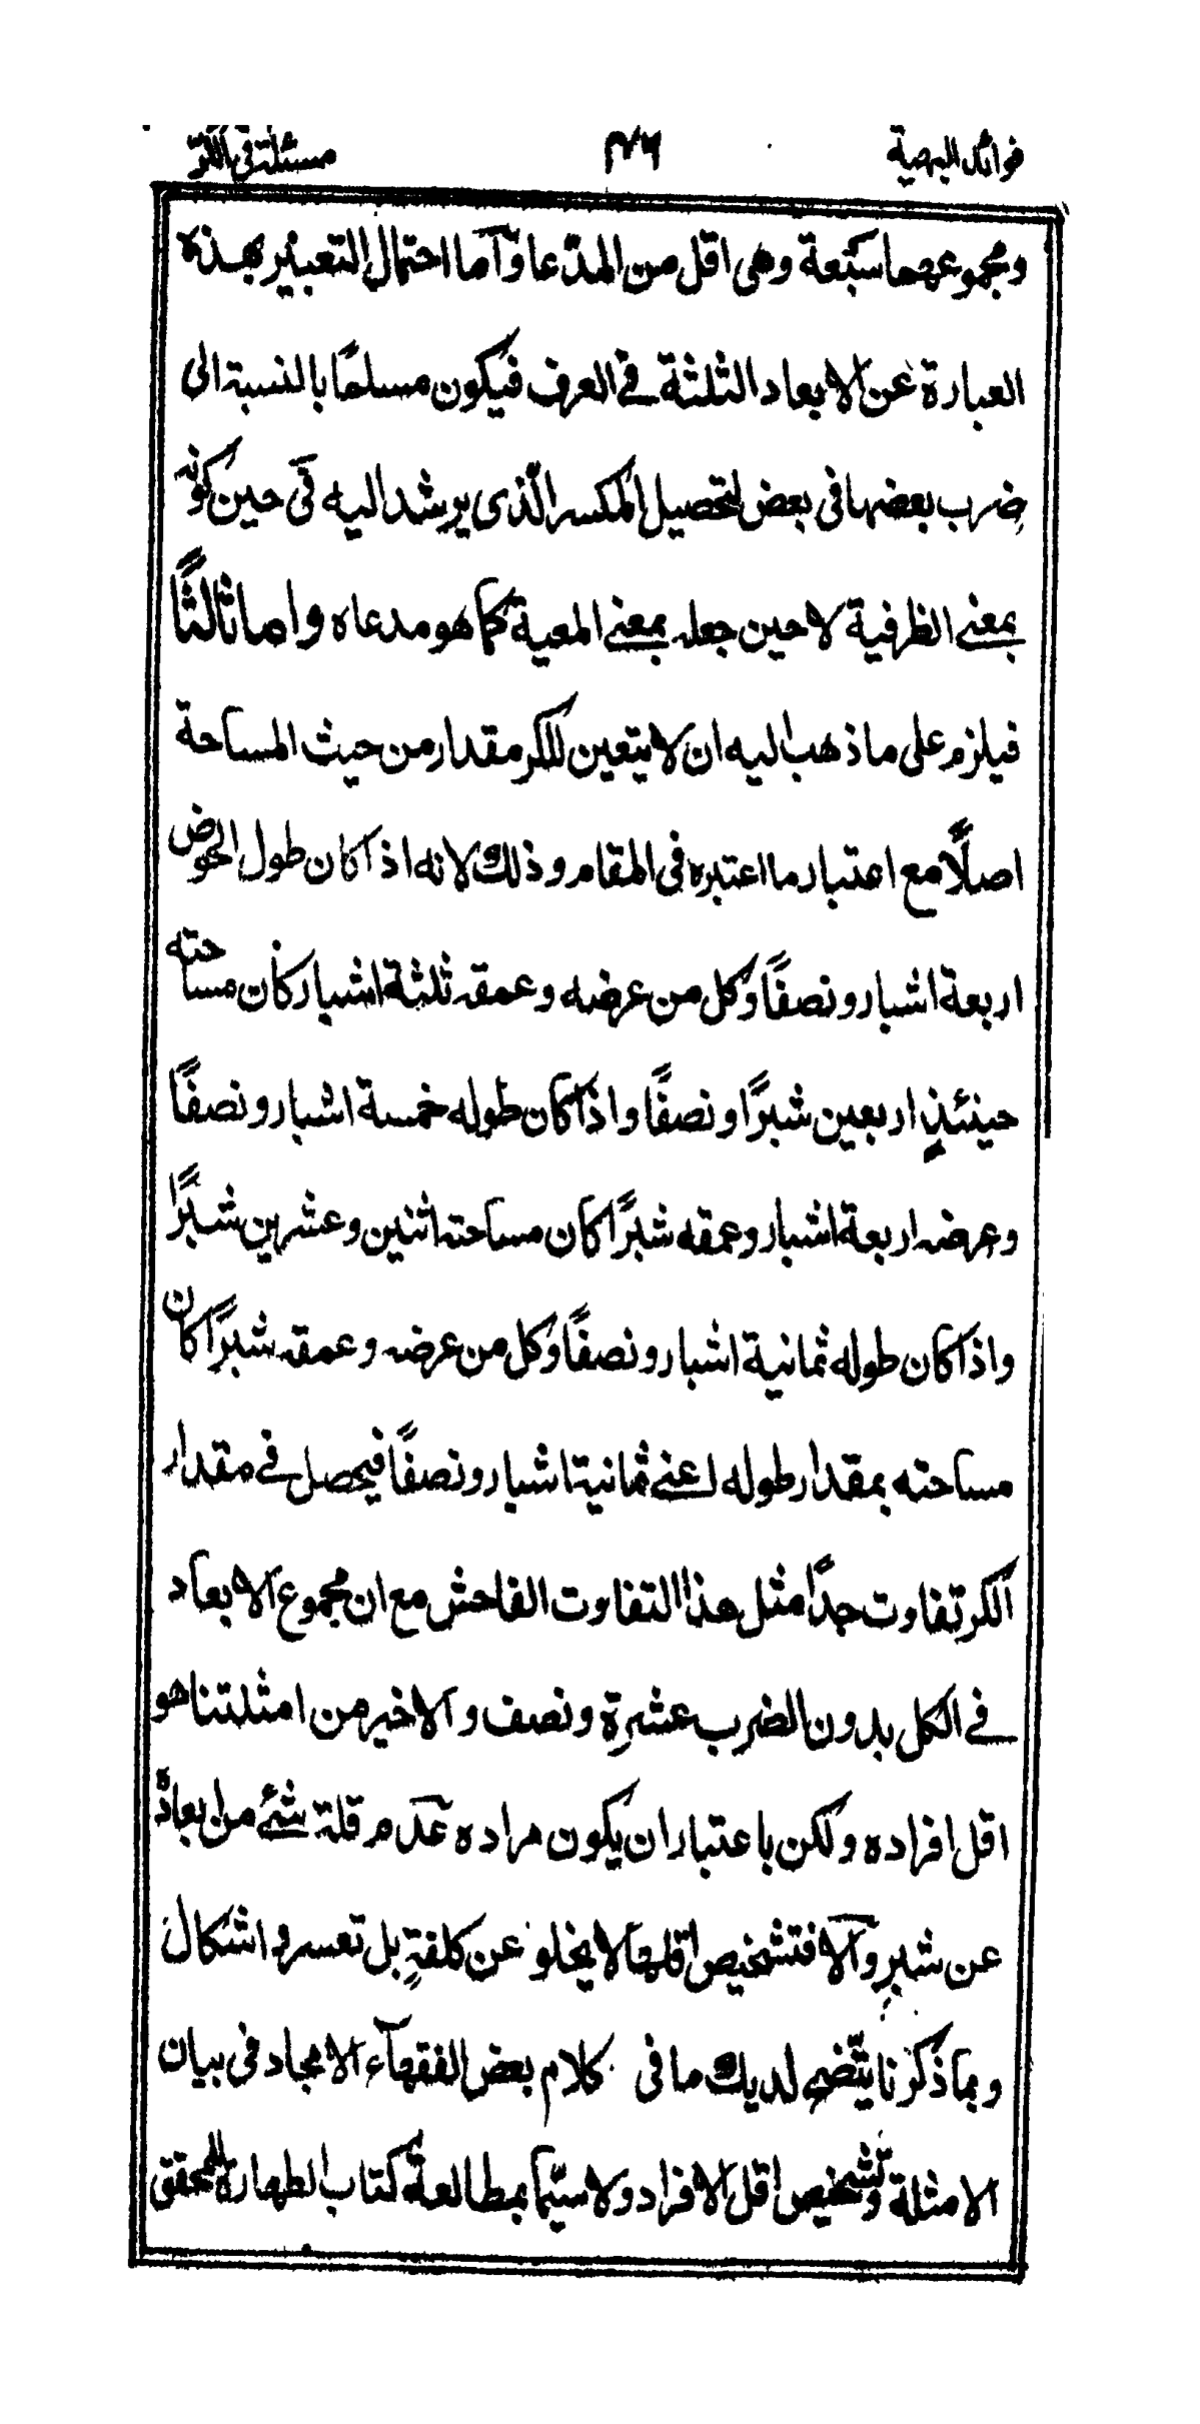 فوائد البهية
مسئلة في الكر
ومجموعهما سبعة وهى اقل من المدّعا وآما احتمال التعبير بهذه
العبارة عن الابعاد الثلثة في العرف فيكون مسلمًا بالنسبة الى
ضرب بعضها فى بعض لتحصيل المكسر الّذى يرشد اليه فى حين كونه
بمعنى الظرفية لا حين جعله بمعنى المعية كما هو مدعاه واما ثالثًا
فيلزم على ما ذهب اليه ان لا يتعين للكر مقدار من حيث المساحة
اصلًا مع اعتبار ما اعتبره فى المقام وذلك لانه اذا كان طول الحوض
اربعة اشبار ونصفًا وكل من عرضه وعمقه ثلثة اشبار كان مساحته
حينئذٍ اربعين شبرًا ونصفًا واذا كان طوله خمسة اشبار ونصفًا
وعرضه اربعة اشبار وعمقه شبرًا كان مساحته اثنين وعشرين شبرًا
واذا كان طوله ثمانية اشبار ونصفًا وكل من عرضه وعمقه شبرًا كان
مساحته بمقدار طوله اعنى ثمانية اشبار ونصفًا فيحصل في مقدار
الكر تفاوت جدًا مثل هذا التفاوت الفاحش مع ان مجموع الابعاد
في الكل بدون الضرب عشرة ونصف والاخير من امثلتنا هو
اقل افراده ولكن باعتبار ان يكون مراده عدم قلة شئ من ابعاده
عن شبرٍ وآلا فتشخيص اقلها لا يخلو عن كلفةٍ بل تعسر واشكال
وبما ذكرنا يتّضح لديك ما فى كلام بعض الفقهآء الامجاد فى بيان
الامثلة وتشخيص اقل الافراد ولا سيّما بمطالعة كتاب الطهارة للمحقق